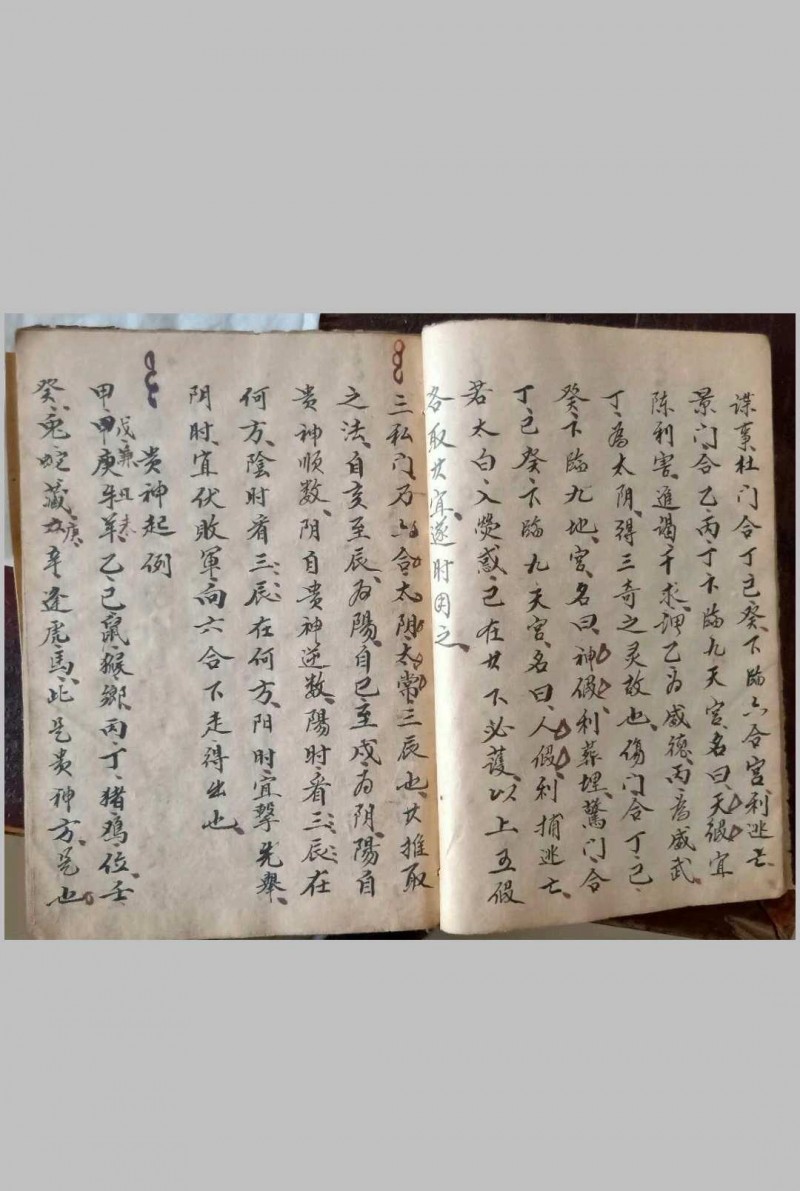 谋事、杜门合丁己癸、下临六合宫、利逃亡、
景门合乙丙丁、下临九天宫、名曰、天假、宜
陈利害、進谒干求、謂乙為威德、丙為威武、
丁、為太阴、得三奇之灵故也、傷门合丁己
癸、下临九地、宫、名曰、神假、利葬埋、驚门合
丁己癸、下临九天宫、名曰、人假、利捕逃亡、
若太白入熒惑、己在其下必获、以上五假
各取其宜、遂时因之、
三私门、乃六合太阴、太常、三辰也、其推取
之法、自亥至辰、為陽、自巳至戌、為阴、陽自
贵神順数、阴自贵神逆数、陽时看三、辰、在
何方、陰时看三、辰、在何方、阳时宜擊先舉、
阴时、宜伏敗軍、向六合下走得出也、
贵神起例
甲戊庚牛羊、乙己鼠猴鄉、丙丁、猪鳮位、壬
癸、兎蛇藏、六辛逢虎馬、此是贵神方、是也、